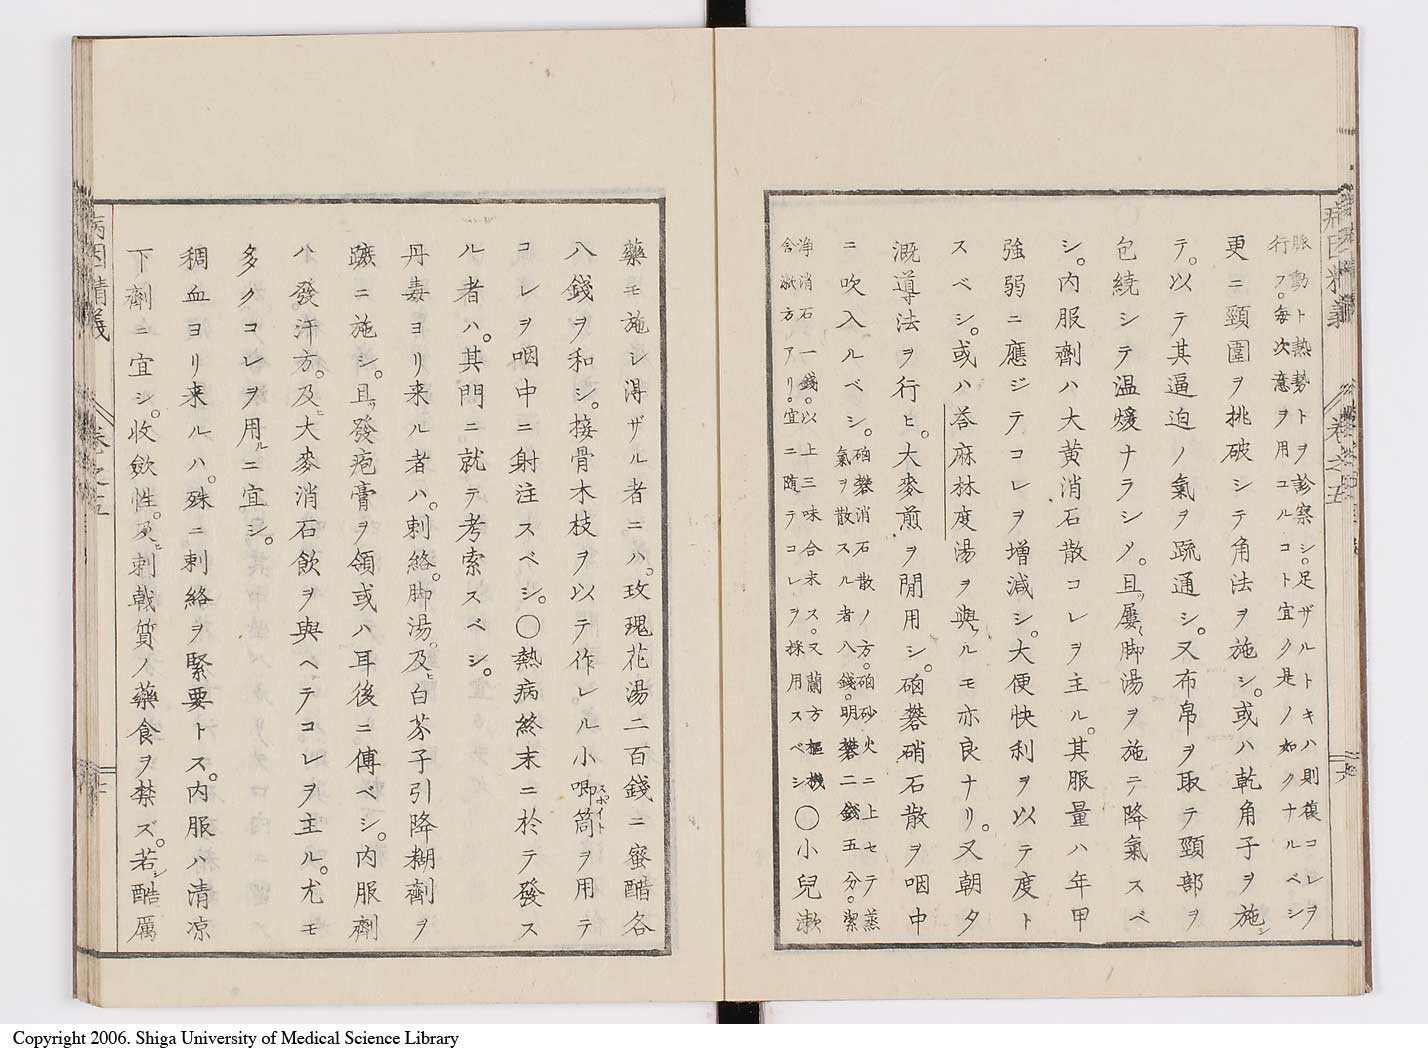 脈動ト熱勢トヲ診察シ。足ザルトキハ則復コレヲ
行フ。毎次意ヲ用コルコト宜ク是ノ如クナルベシ
更ニ頸圍ヲ挑破シテ角法ヲ施シ。或ハ乾角子ヲ施シ
テ。以テ其逼迫ノ氣ヲ疏通シ。又布帛ヲ取テ頸部ヲ
包繞シテ温煖ナラシメ。且ツ屡〻脚湯ヲ施テ降氣スベ
シ。内服劑ハ大黄消石散コレヲ主ル。其服量ハ年甲
強弱ニ應ジテコレヲ増減シ。大便快利ヲ以テ度ト
スベシ。或ハ荅麻林度湯ヲ與フルモ亦良ナリ。又朝夕
漑導法ヲ行ヒ。大麥煎ヲ閒用シ。硇礬硝石散ヲ咽中
ニ吹入ルベシ。
硇礬消石散ノ方。硇砂火ニ上セテ蒸
氣ヲ散スル者八錢。明礬二錢五分。潔
浄消石一錢。以上三味合末ス。又蘭方樞機
含漱方アリ。宜ニ隨テコレヲ採用スベシ
〇小兒漱
藥モ施シ淂ザル者ニハ。玫瑰花湯二百錢ニ蜜醋各
八錢ヲ和シ。接骨木枝ヲ以テ作レル小喞筒ヲ用テ
スポイト
コレヲ咽中ニ射注スベシ。〇熱病終末ニ於テ發ス
ル者ハ。其門ニ就テ考索スベシ。
丹毒ヨリ来ル者ハ。刺絡。脚湯。及ヒ白芥子引降糊劑ヲ
蹠ニ施シ。且ツ發疱膏ヲ領或ハ耳後ニ傅ベシ。内服劑
ハ發汗方。及ヒ大麥消石飲ヲ與ヘテコレヲ主ル。尤モ
多クコレヲ用ルニ宜シ。
稠血ヨリ来ルハ。殊ニ刺絡ヲ緊要トス。内服ハ清涼
下劑ニ宜シ。收斂性。及ヒ刺戟質ノ藥食ヲ禁ズ。若シ酷厲
病因精義
卷之五
病因精義
卷之五
Copyright 2006. Shiga University of Medical Science Library